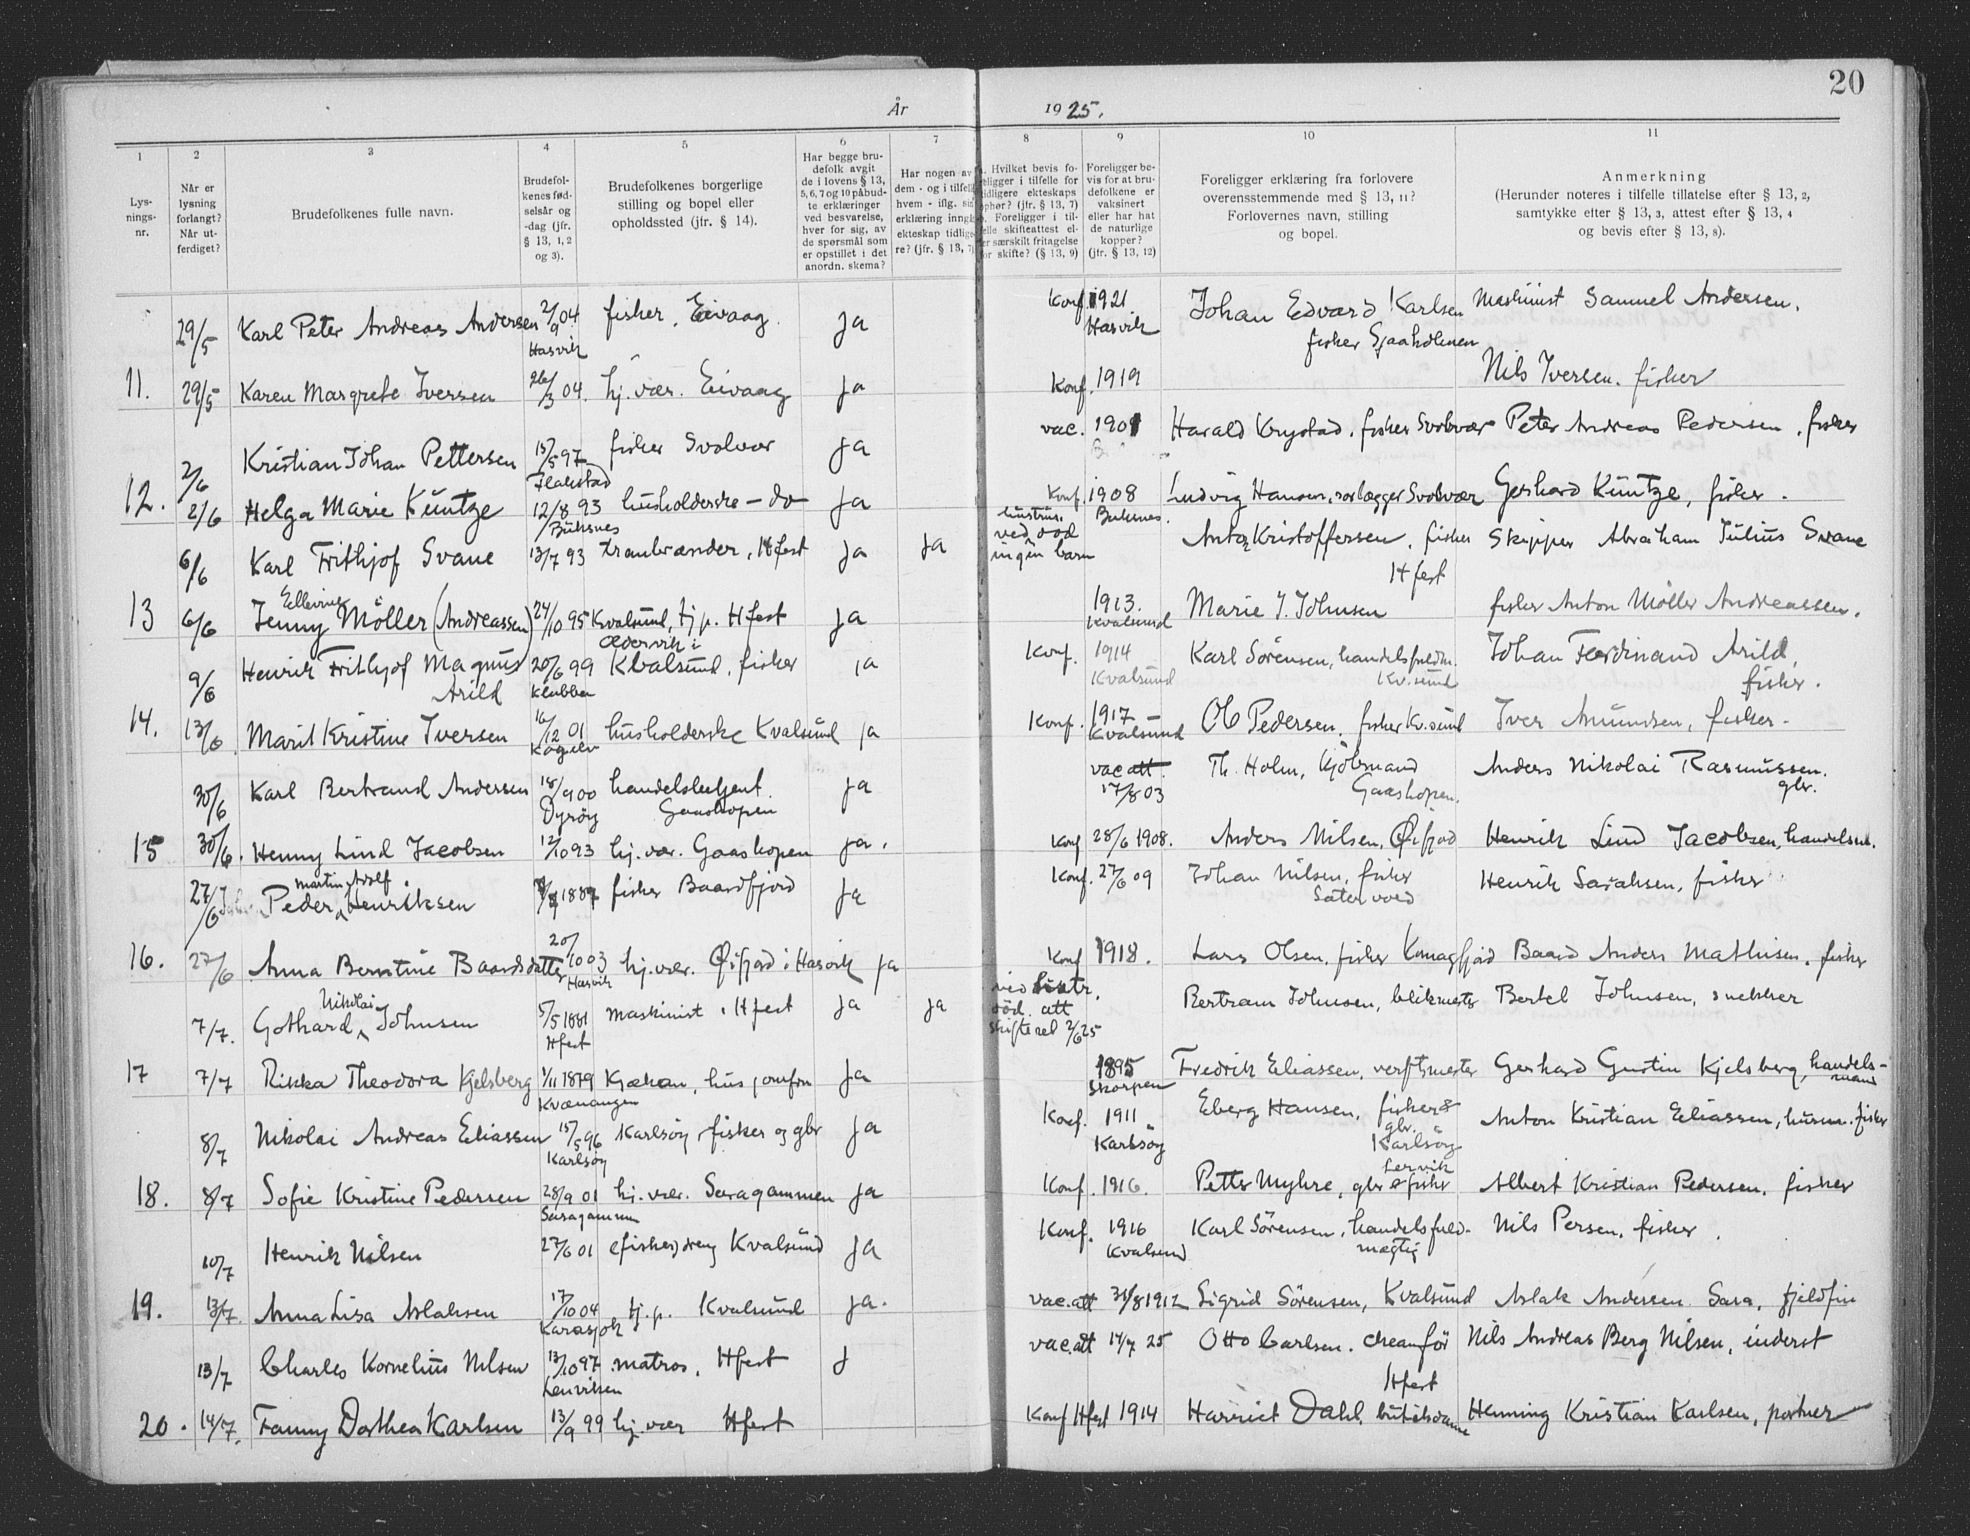 20
År 1925.
1 2 3 4 5 6 7 8 9 10 11
Lys-
nings-
nr.
Når er
lysning
forlangt?
Når ut-
ferdiget?
Brudefolkenes fulle navn.
Brudefol-
kenes fød-
selsår og
-dag (jfr.
§ 13, 1, 2
og 3).
Brudefolkenes borgerlige
stilling og bopel eller
opholdssted (jfr. § 14).
Har begge bru-
defolk avgit
de i lovens § 13,
5, 6, 7 og 10 påbud-
te erklæringer
ved besvarelse,
hver for sig, av
de spørsmål som
er opstillet i det
anordn. skema?
Har nogen av
dem - og i tilfell
hvem - iflg. sin
erklæring inngå
ekteskap tidlige
re? (jfr. § 13, 7)
Hvilket bevis fo-
religger i tilfelle for
tidligere ekteskaps
ophør? (jfr. § 13, 7)
Foreligger i til-
felle skifteattest el-
ler særskilt fritagelse
for skifte? (§ 13, 9)
Foreligger be-
vis for at bru-
defolkene er
vaksinert
eller har hat
de naturlige
kopper?
(jfr. § 13, 12)
Foreligger erklæring fra forlovere
overensstemmende med § 13, 11?
Forlovernes navn, stilling
og bopel.
Anmerkning
(Herunder noteres i tilfelle tillatelse efter § 13, 2,
samtykke efter § 13, 3, attest efter § 13, 4
og bevis efter § 13, 8).
29/5 Karl Peter Andreas Andersen 2/9 04 fisker, Eivaag ja Konf. 1921 Johan Edvard Karlsen Maskinist Samuel Andersen.
Hasvik Hasvik fisker Sjaaholmen
11. 29/5 Karen Margrete Iversen 26/3 04. hj. vær. Eivaag ja Konf. 1919 Nils Iversen. fisker
2/6 Kristian Johan Pettersen 15/5 97 fisker Svolvær ja vac. 1901 Harald Krystad. fisker Svolvær Peter Andreas Pedersen, fisker
Flakstad
12. 2/6 Helga Marie Küntze 12/8 93 husholderske - do ja Konf. 1908 Ludvig Hansen, rørlægger Svolvær Gerhard Küntze, fisker.
Buksnes Buksnes.
6/6 Karl Frithjof Svane 13/7 93 tranbrænder, Hfest ja ja hustrus ved död ingen barn Anton Kristoffersen, fisker Skipper Abraham Julius Svane
Hfest
Ellevine
13 6/6 Jenny Möller (Andreassen) 24/10 95 Kvalsund, tj p. Hfest ja 1913. Marie J. Johnsen fisker Anton Möller Andreassen.
Kvalsund
9/6 Henrik Frithjof Magnus 20/6 99 Kvalsund, fisker ja Konf. 1914 Karl Sörensen, handelsfuldm. Johan Ferdinand Arild,
Arild Klubben Kvalsund Kv.sund fisker.
14. 13/6 Marit Kristine Iversen 16/12 01 husholderske Kvalsund ja Konf. 1917 Ol Pedersen, fisker Kv.sund Iver Amundsen, fisker.
Kvalsund
30/6 Karl Bertrand Andersen 18/9 00 handelsbetjent. ja vac att. Th. Holm, Kjöbmand Anders Nikolai Rasmussen.
Dyröy Gaashopen 17/8 03 Gaashopen. gbr.
15 30/6. Henny Lind Jacobsen 12/10 93 hj. vær. Gaashopen ja. Konf 28/6 1908. Anders Nilsen, Öifjord Henrik Lind Jacobsen, handelsm.
Martin Adolf
27/6 Peder Henriksen 1887 fisker Baardfjord ja Konf. 27/6 09 Johan Nilsen, fisker Henrik Sarahsen, fisker
16. 27/6 Anna Berntine Baardsdatter 20/10 03 hj. vær. Öifjord i Hasvik ja Konf 1918. Lars Olsen, fisker Komagfjord Baard Anders Mathisen. fisker
Hasvik
Nikolai
7/7. Gothard Johnsen 5/5 1881 maskinist, Hfest ja ja ved hustr. död. att skifteret 2/6 25 Bertram Johnsen, blikmester Bertel Johnsen, snekker
Hfest
17 7/7 Rikka Theodora Kjelsberg 1/11 1879 husjomfru ja 1895 Fredrik Eliassen, verftsmester Gerhard Gustin Kjelsberg, handels-
mand
Kvænangen Skorpen
8/7 Nikolai Andreas Eliassen 15/5 96 Karlsöy, fisker og gbr ja Konf. 1911 Eberg Hansen, fisker & gbr. Anton Kristian Eliassen, husm. fisker
Karlsöy Karlsöy Karlsöy
18. 8/7 Sofie Kristine Pedersen 28/9 01 hj. vær. Saragammen ja Konf. 1916. Petter Myhre, gbr & fisker Lervik Albert Kristian Pedersen, fisker
Saragammen
10/7 Henrik Nilsen 27/6 01 (fisker) dreng Kvalsund ja Konf. 1916 Karl Sörensen, handelsfuld- Nils Persen, fisker.
Kvalsund mægtig
19. 13/7. Anna Lisa Aslaksen 17/10 04 tj. p. Kvalsund ja. vac. att 31/8 1912 Sigrid Sörensen, Kvalsund Aslak Andersen Sara, fjeldfin
Karasjok
13/7 Charles Kornelius Nilsen 13/10 97 matros, Hfest j vac. att 17/7 25 Otto Carlsen. Nils Andreas Berg Nilsen, inderst
Lenviken Hfest
20. 14/7. Fanny Dorthea Karlsen 13/9 99 hj. vær Hfest Konf Hfest 1914 Harriet Dahl, butiksdame Henning Kristian Karlsen, portner